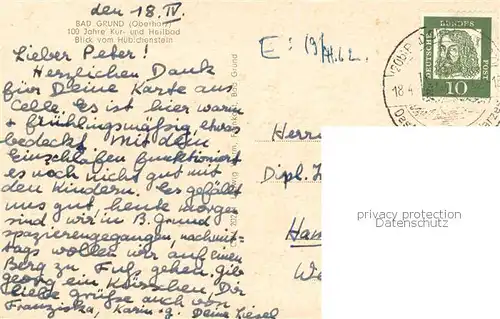 den 18. IV.
BAD GRUND (Oberharz)
100 Jahre Kur- und Heilbad
Blick vom Hübichenstein
Lieber Peter!
Herzlichen Dank
für Deine Karte aus
Celle. Es ist hier warm
+ frühlingsmäßig, etwas
bedeckt. Mit dem
Einschlafen funktioniert
es noch nicht gut mit
den Kindern. Es gefällt
uns gut, heute morgen
sind wir in B. Grund
spazierengegangen, nachmit-
tags wollen wir auf einen
Berg zu Fuß gehen. gib
georg ein Küßchen. Dir
liebe grüße auch von
Franziska, Karin. g. Deine Liesel
Ludwig
Bad Grund
E: 19/IV.62
Herrn
Dipl.
Ham
DEUTSCHE BUNDES POST
10
18.4
privacy protection
Datenschutz